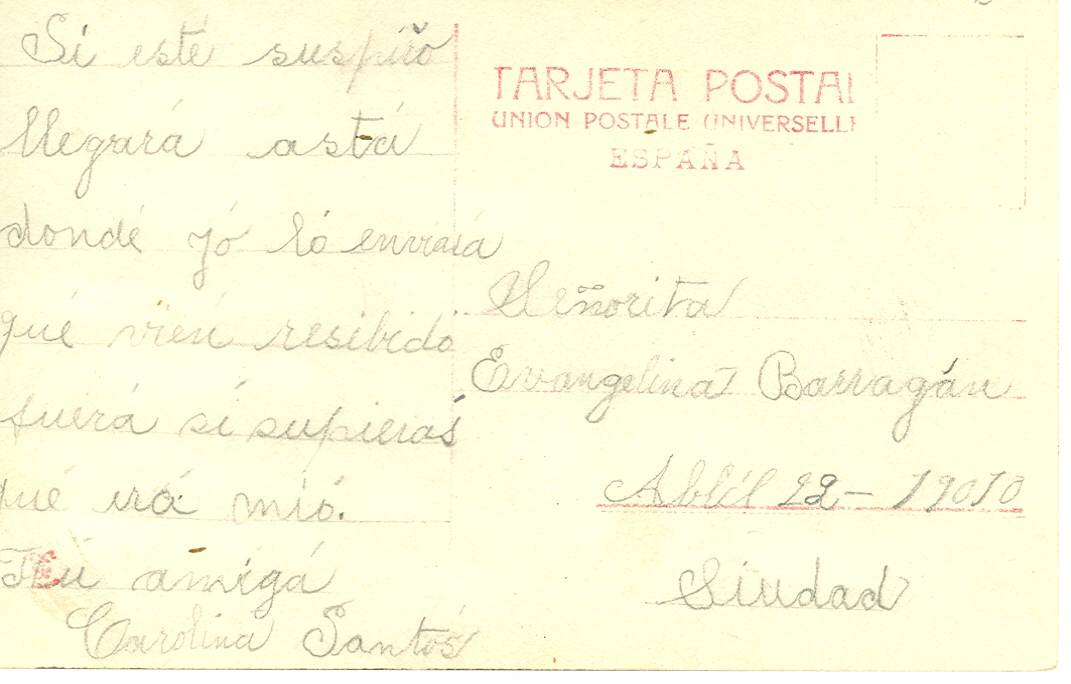 Sí esté suspiro
llegrará astá
dondé yó ló enviará
qué vień resibidó
fuerá sí supierás
qué irá mió.
Tú amigá
Carolina Santós
TARJETA POSTAL
UNION POSTALE UNIVERSELLE
ESPAÑA
Señorita
Evangelina Barragán
Ablil 22 - 19010
Siudad